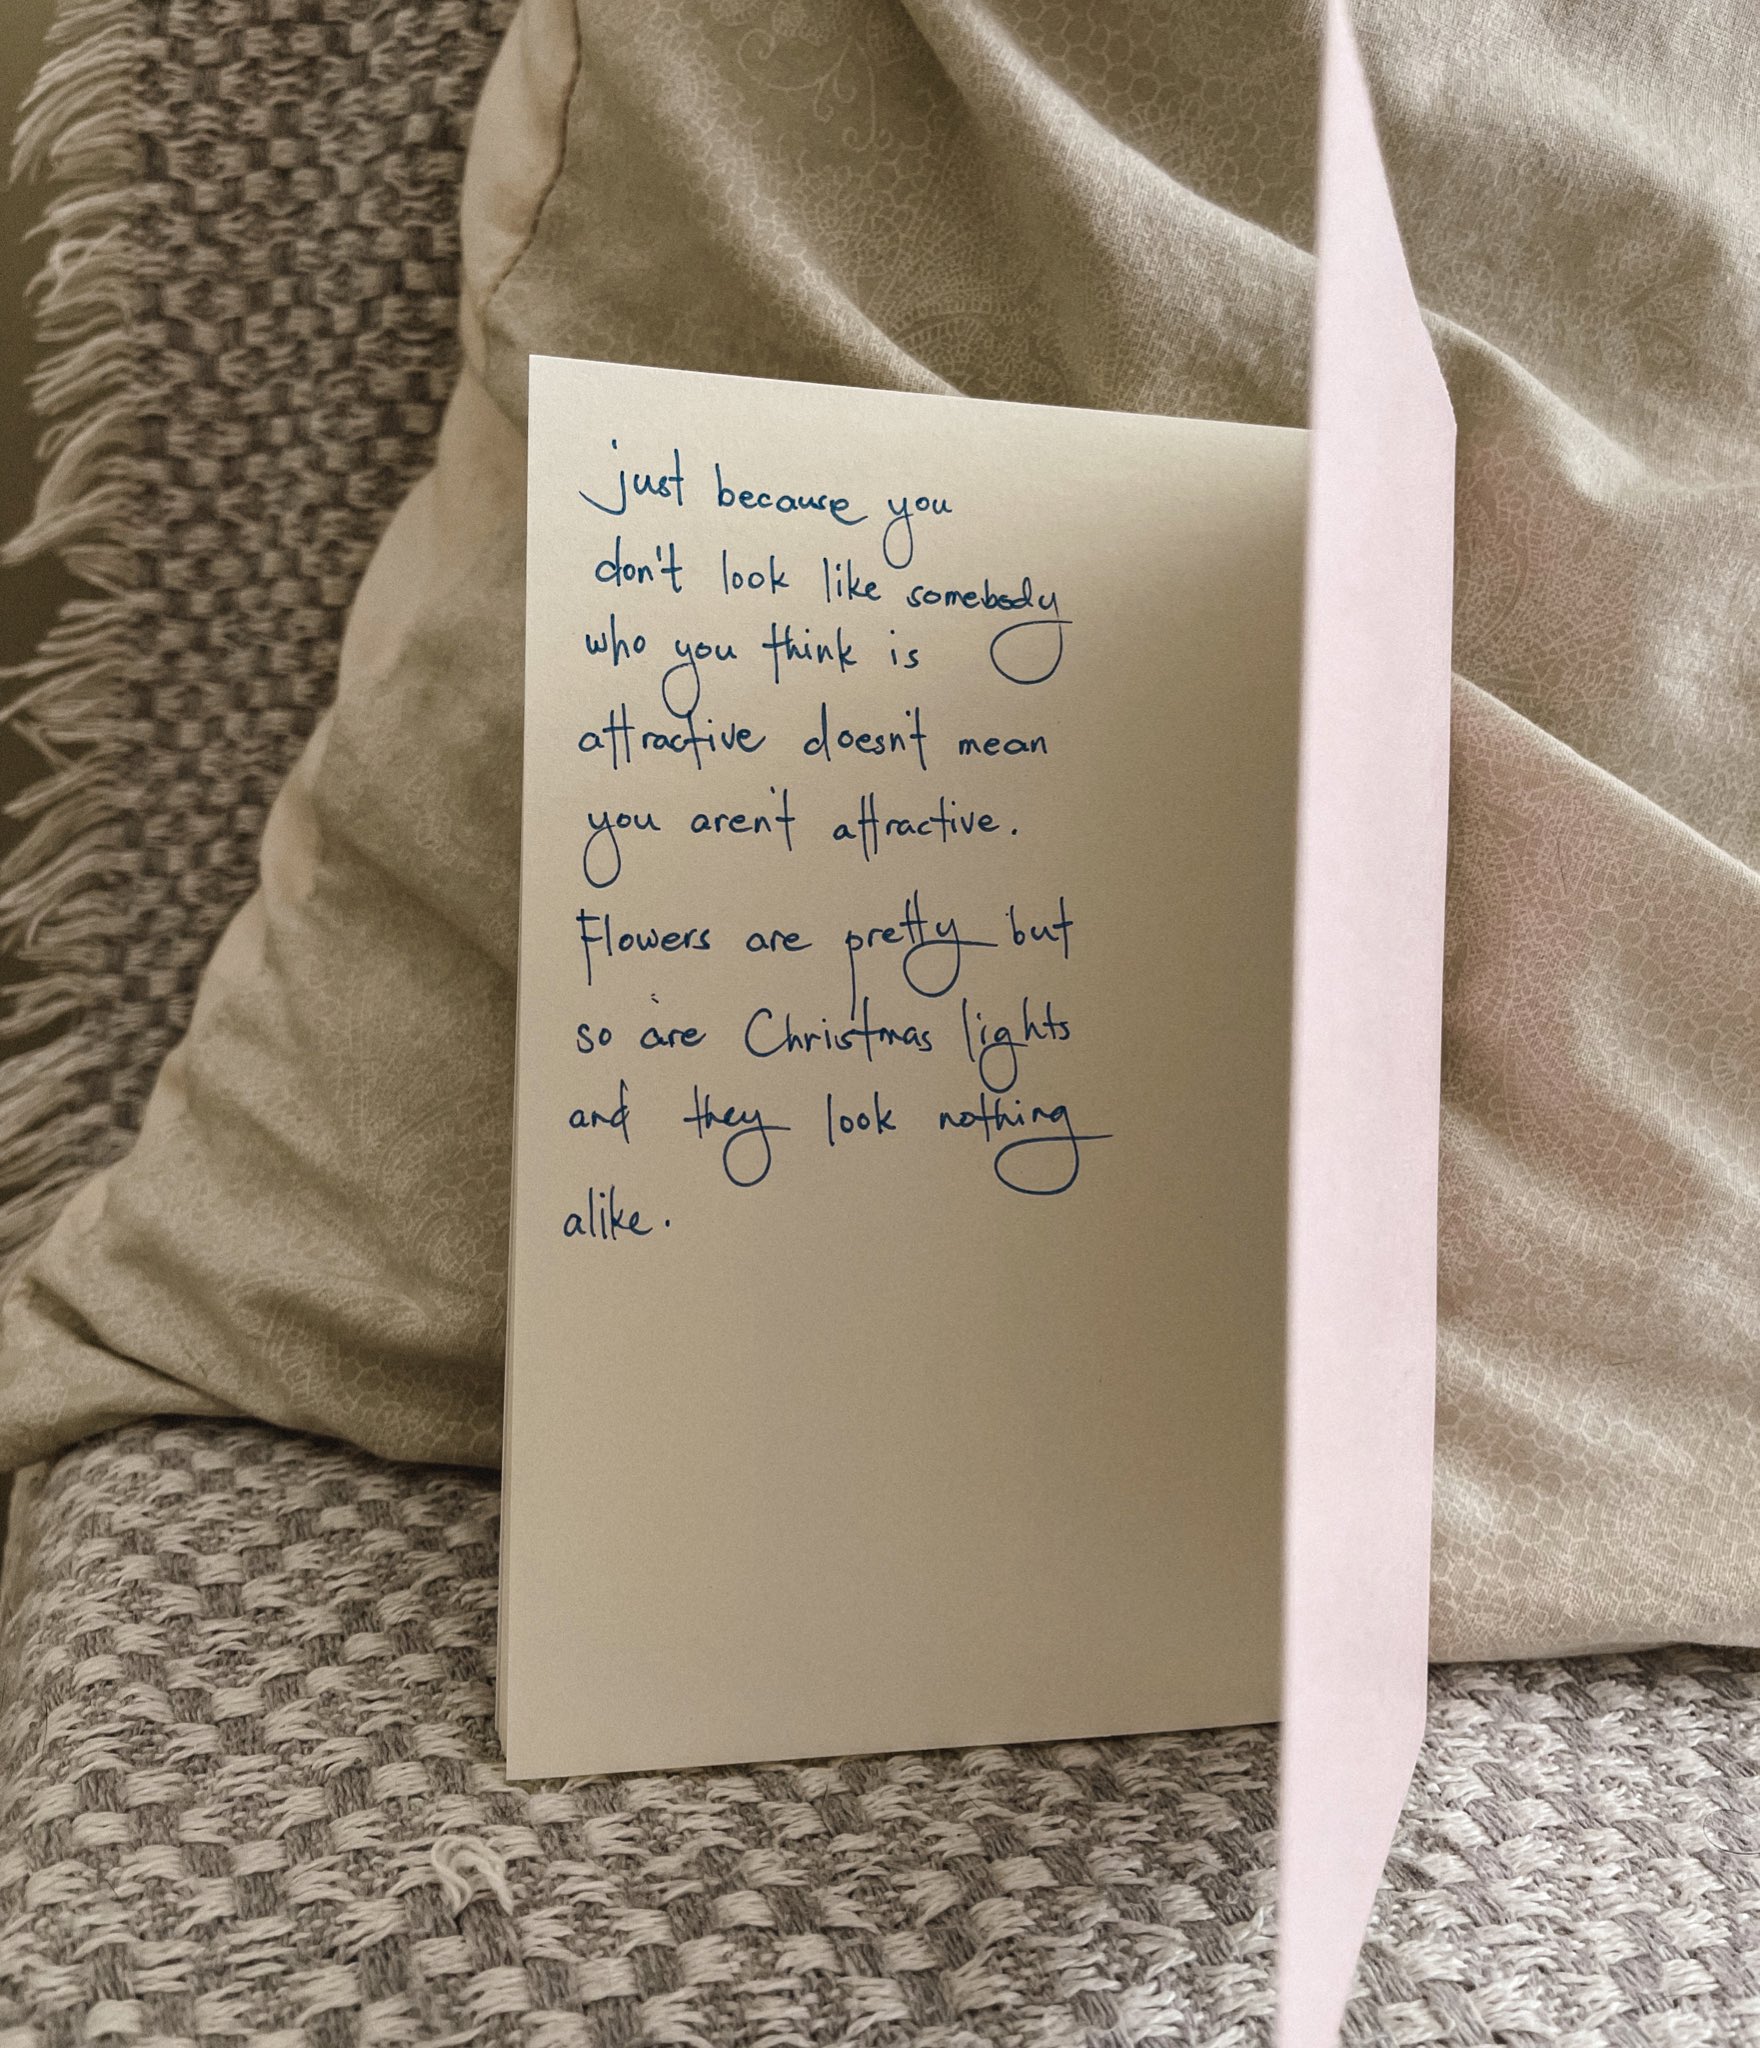 just because you
don't look like somebody
who you think is
attractive doesn't mean
you aren't attractive.
Flowers are pretty but
so are Christmas lights
and they look nothing
alike.